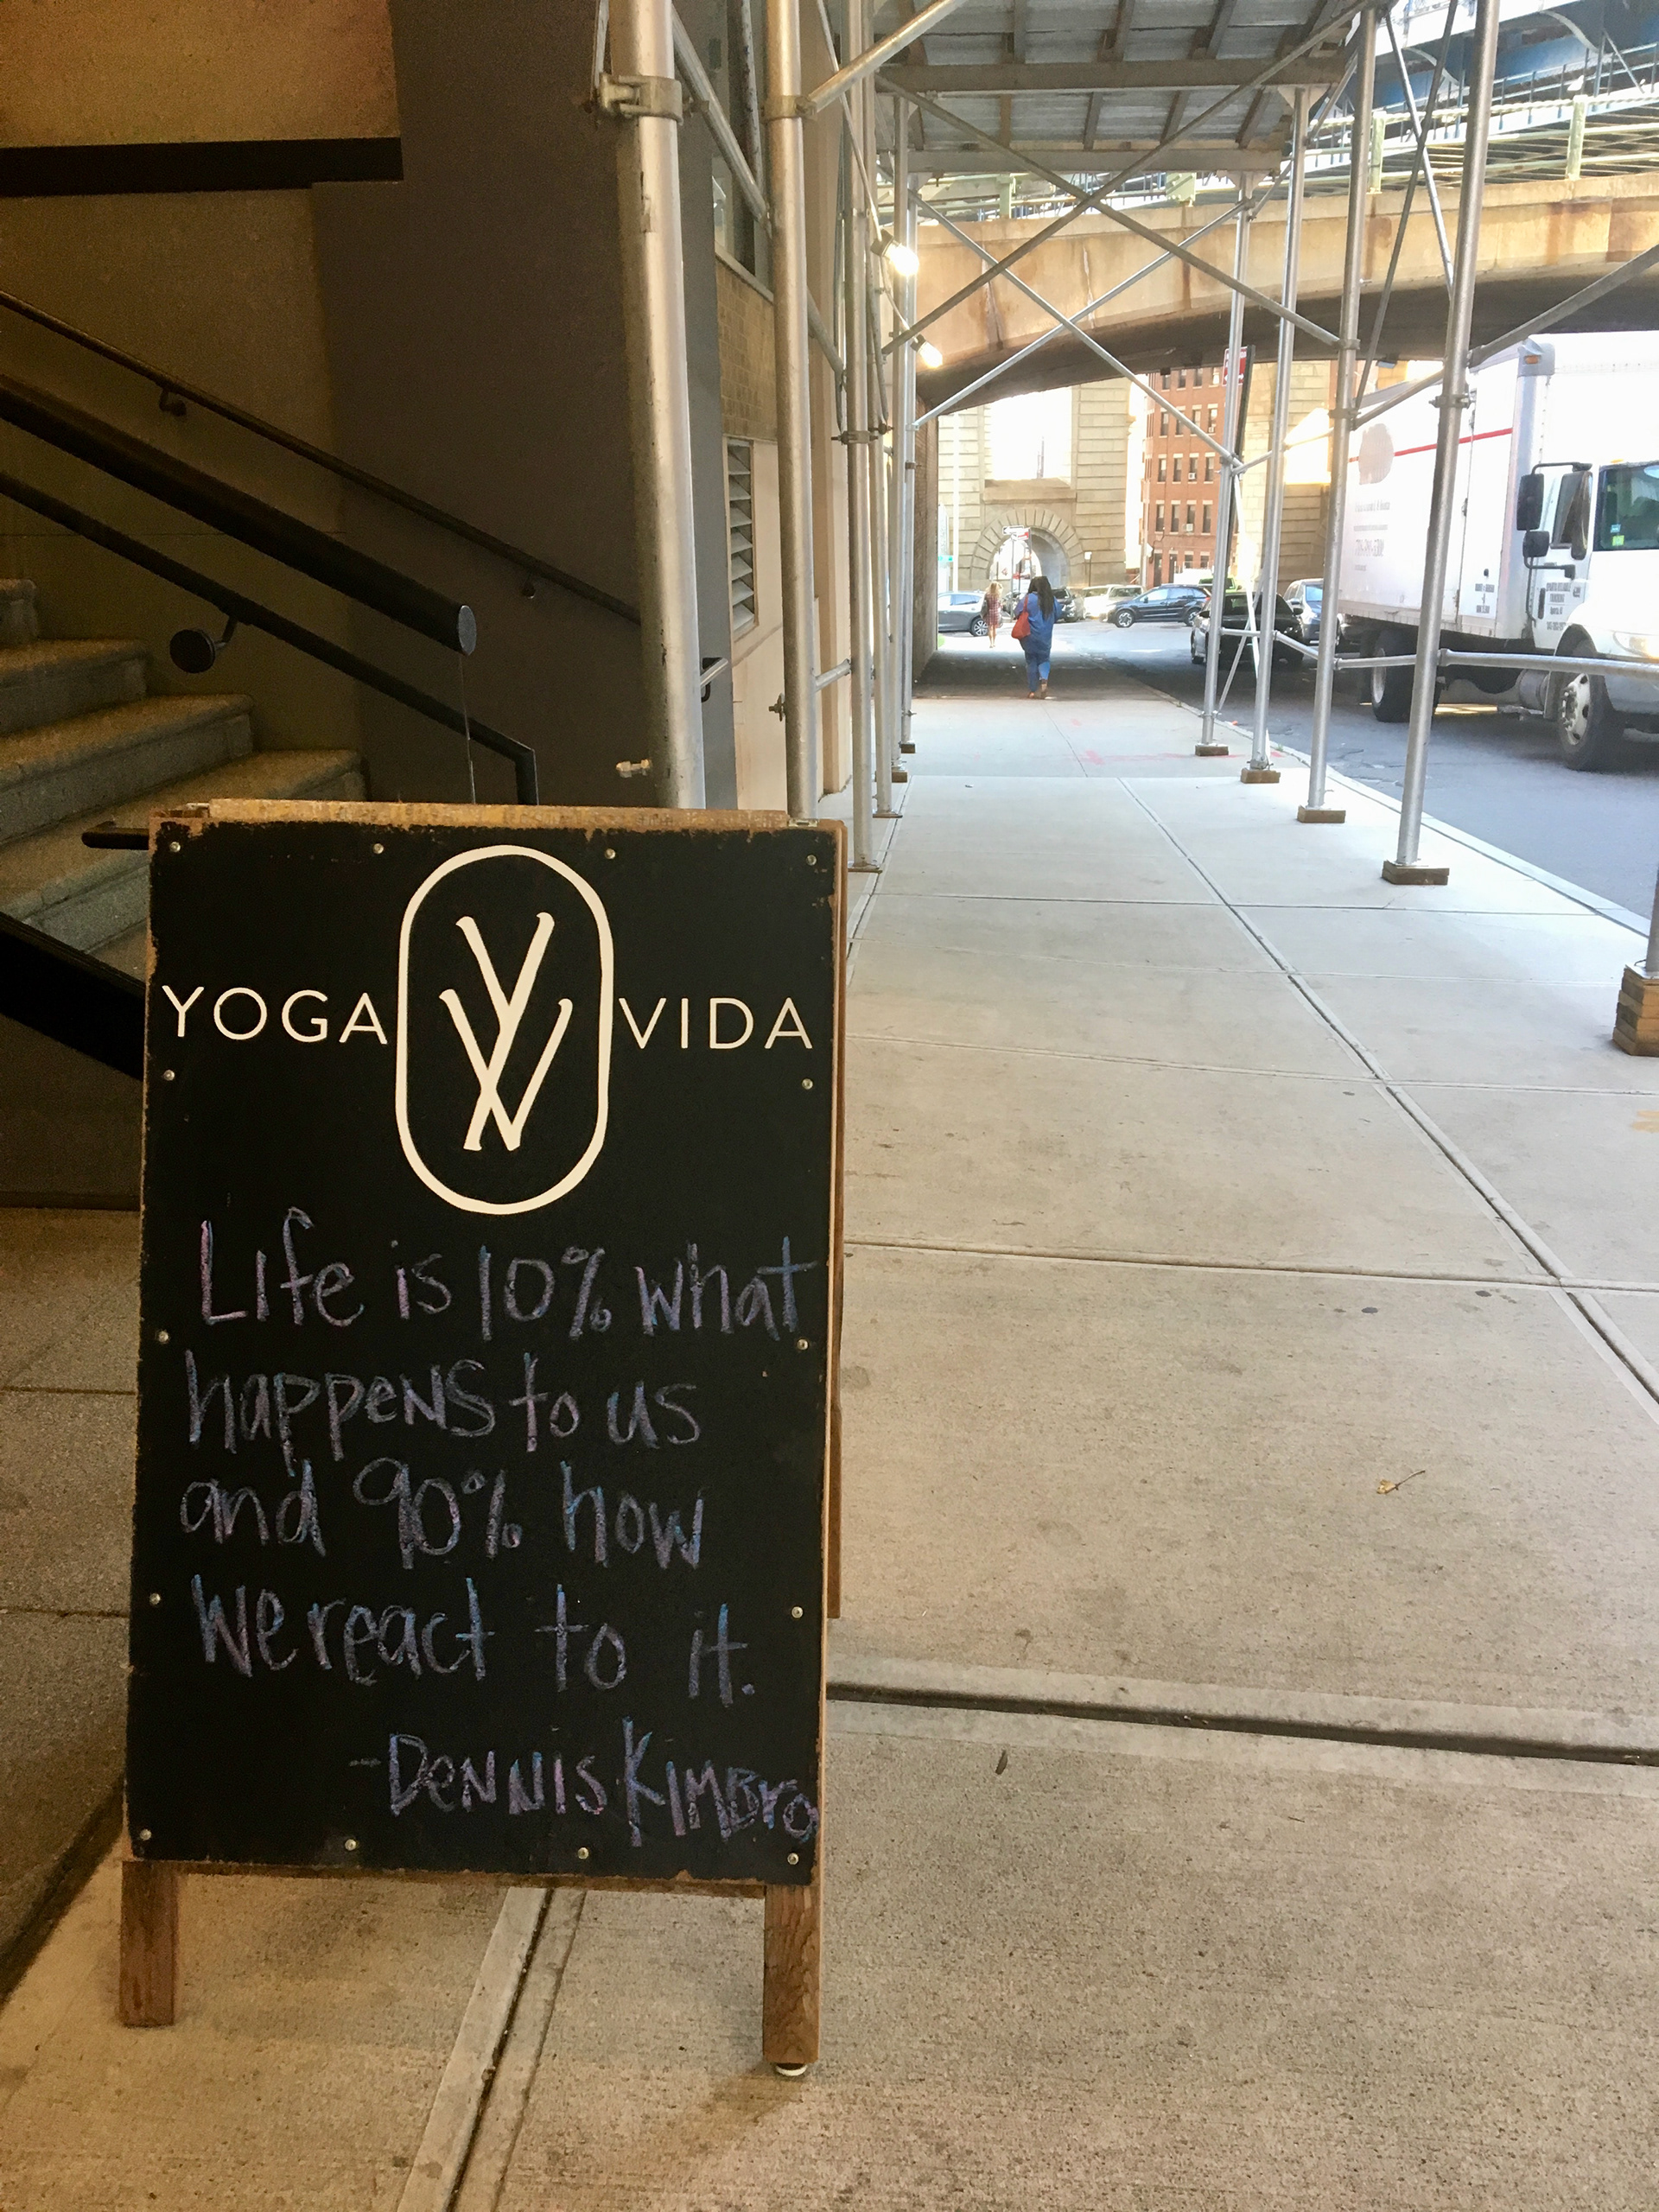 YOGA VIDA
Life is 10% what
happens to us
and 90% how
we react to it.
-Dennis Kimbro